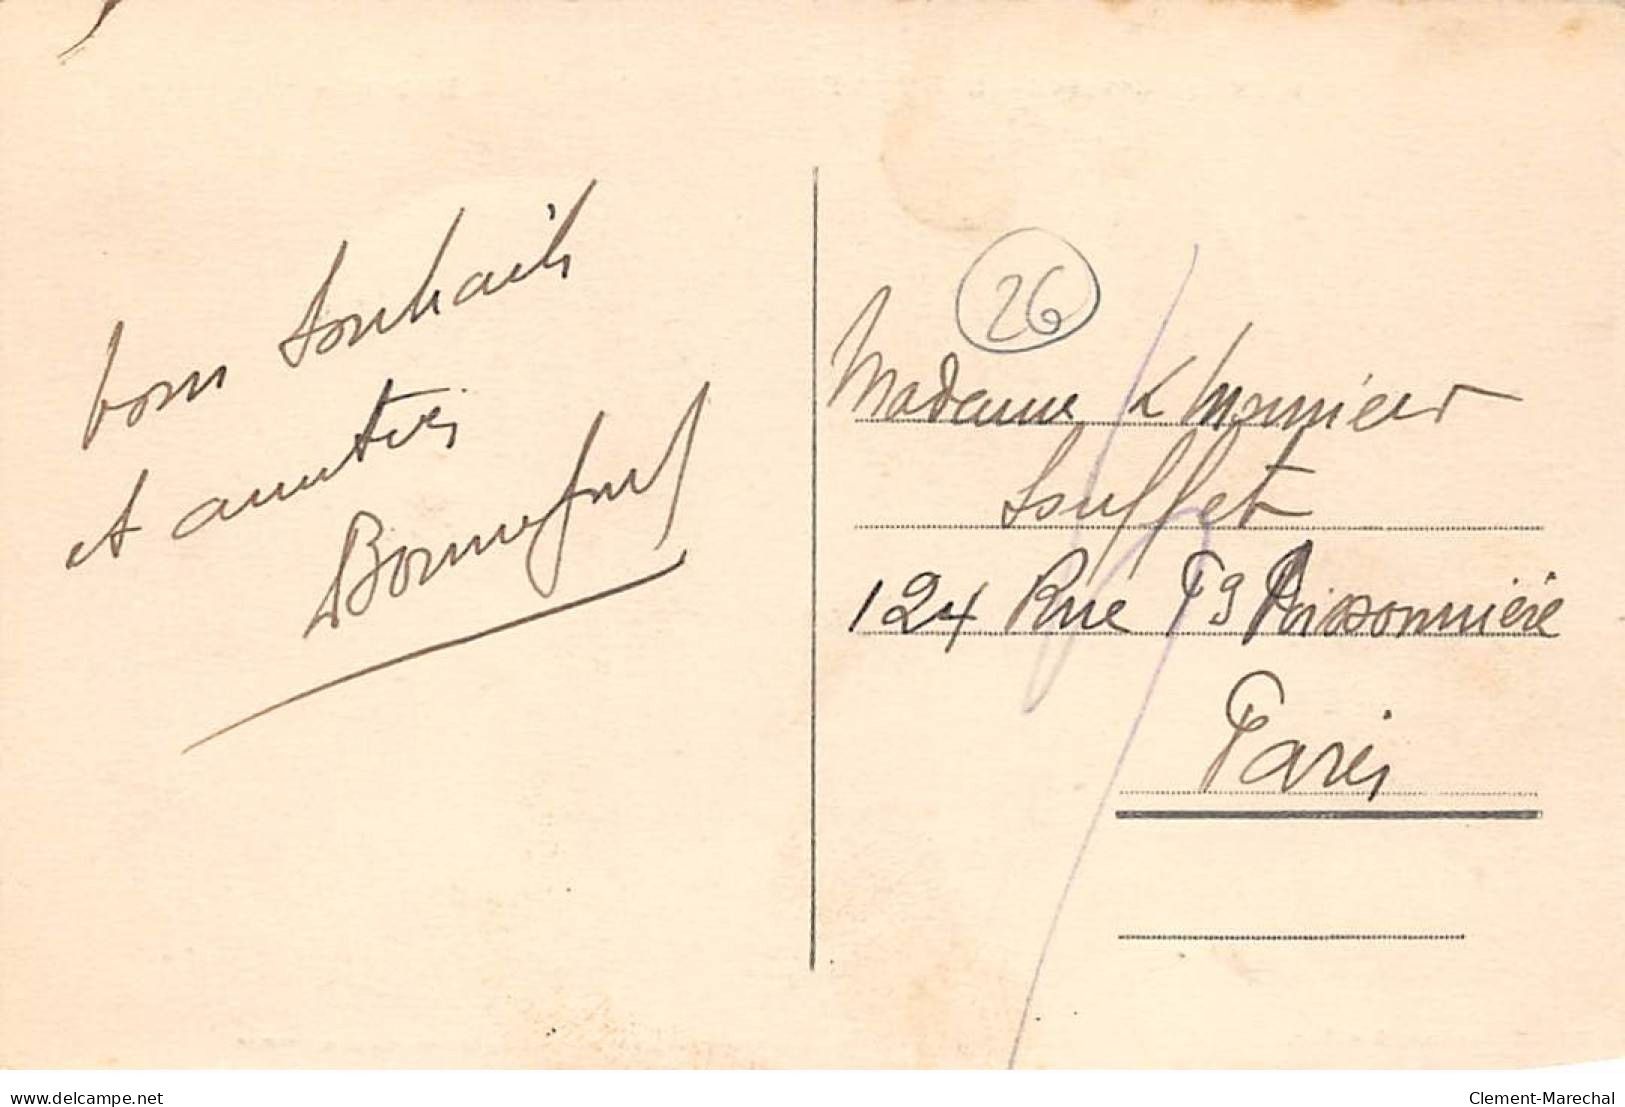 bons souhaits
et amitiés
Bonnefous
26
Madame & Monsieur
Souffet
124 Rue Fg Poissonnière
Paris
delcampe.net
Clement-Marechal